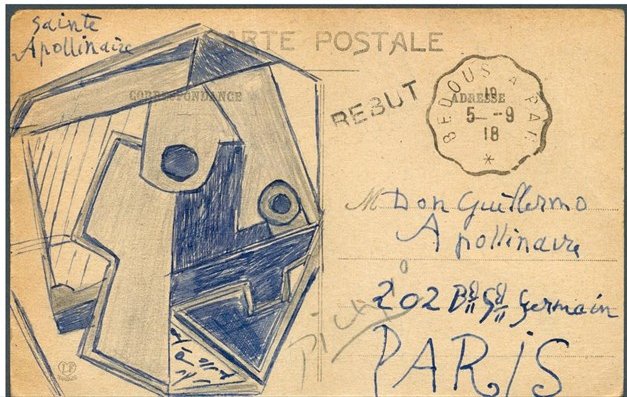 Sainte
Apollinaire
CARTE POSTALE
CORRESPONDANCE
ADRESSE
REBUT
BEDOUS A PAR
19
5 - 9
18
*
M Don Guillermo
Apollinaire
202 Bd St Germain
PARIS
Picasso